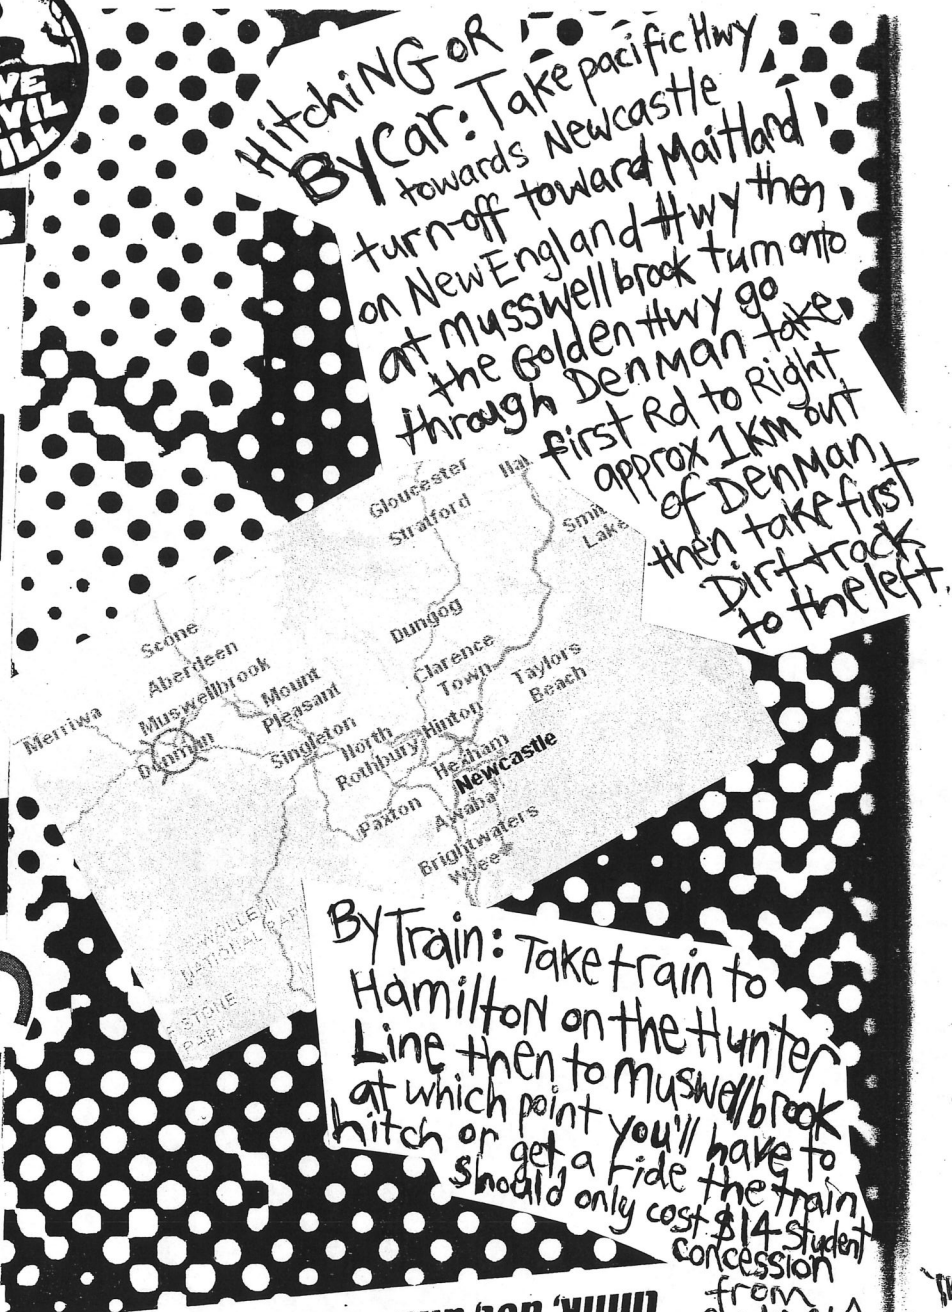 HitchiNG oR
By Car: Take pacific Hwy
towards Newcastle
turn-off toward Maitland
on New England Hwy then
at Musswellbrook turn onto
the Golden Hwy go
through Denman take
first Rd to Right
approx 1KM out
of DenMan,
then take first
Dirt track
to the left.
Gloucester
Stratford
Dungog
Scone
Aberdeen
Muswellbrook
Mount
Pleasant
Clarence
Town
Taylors
Beach
Merriwa
Denman
Singleton
North
Rothbury
Hinton
Hexham
Newcastle
Paxton
Awaba
Brightwaters
Wyee
NATIONAL PARK
STONE
PARK
By Train: Take train to
Hamilton on the Hunter
Line then to Muswellbrook
at which point you'll have to
hitch or get a ride the train
should only cost $14 student
concession
from